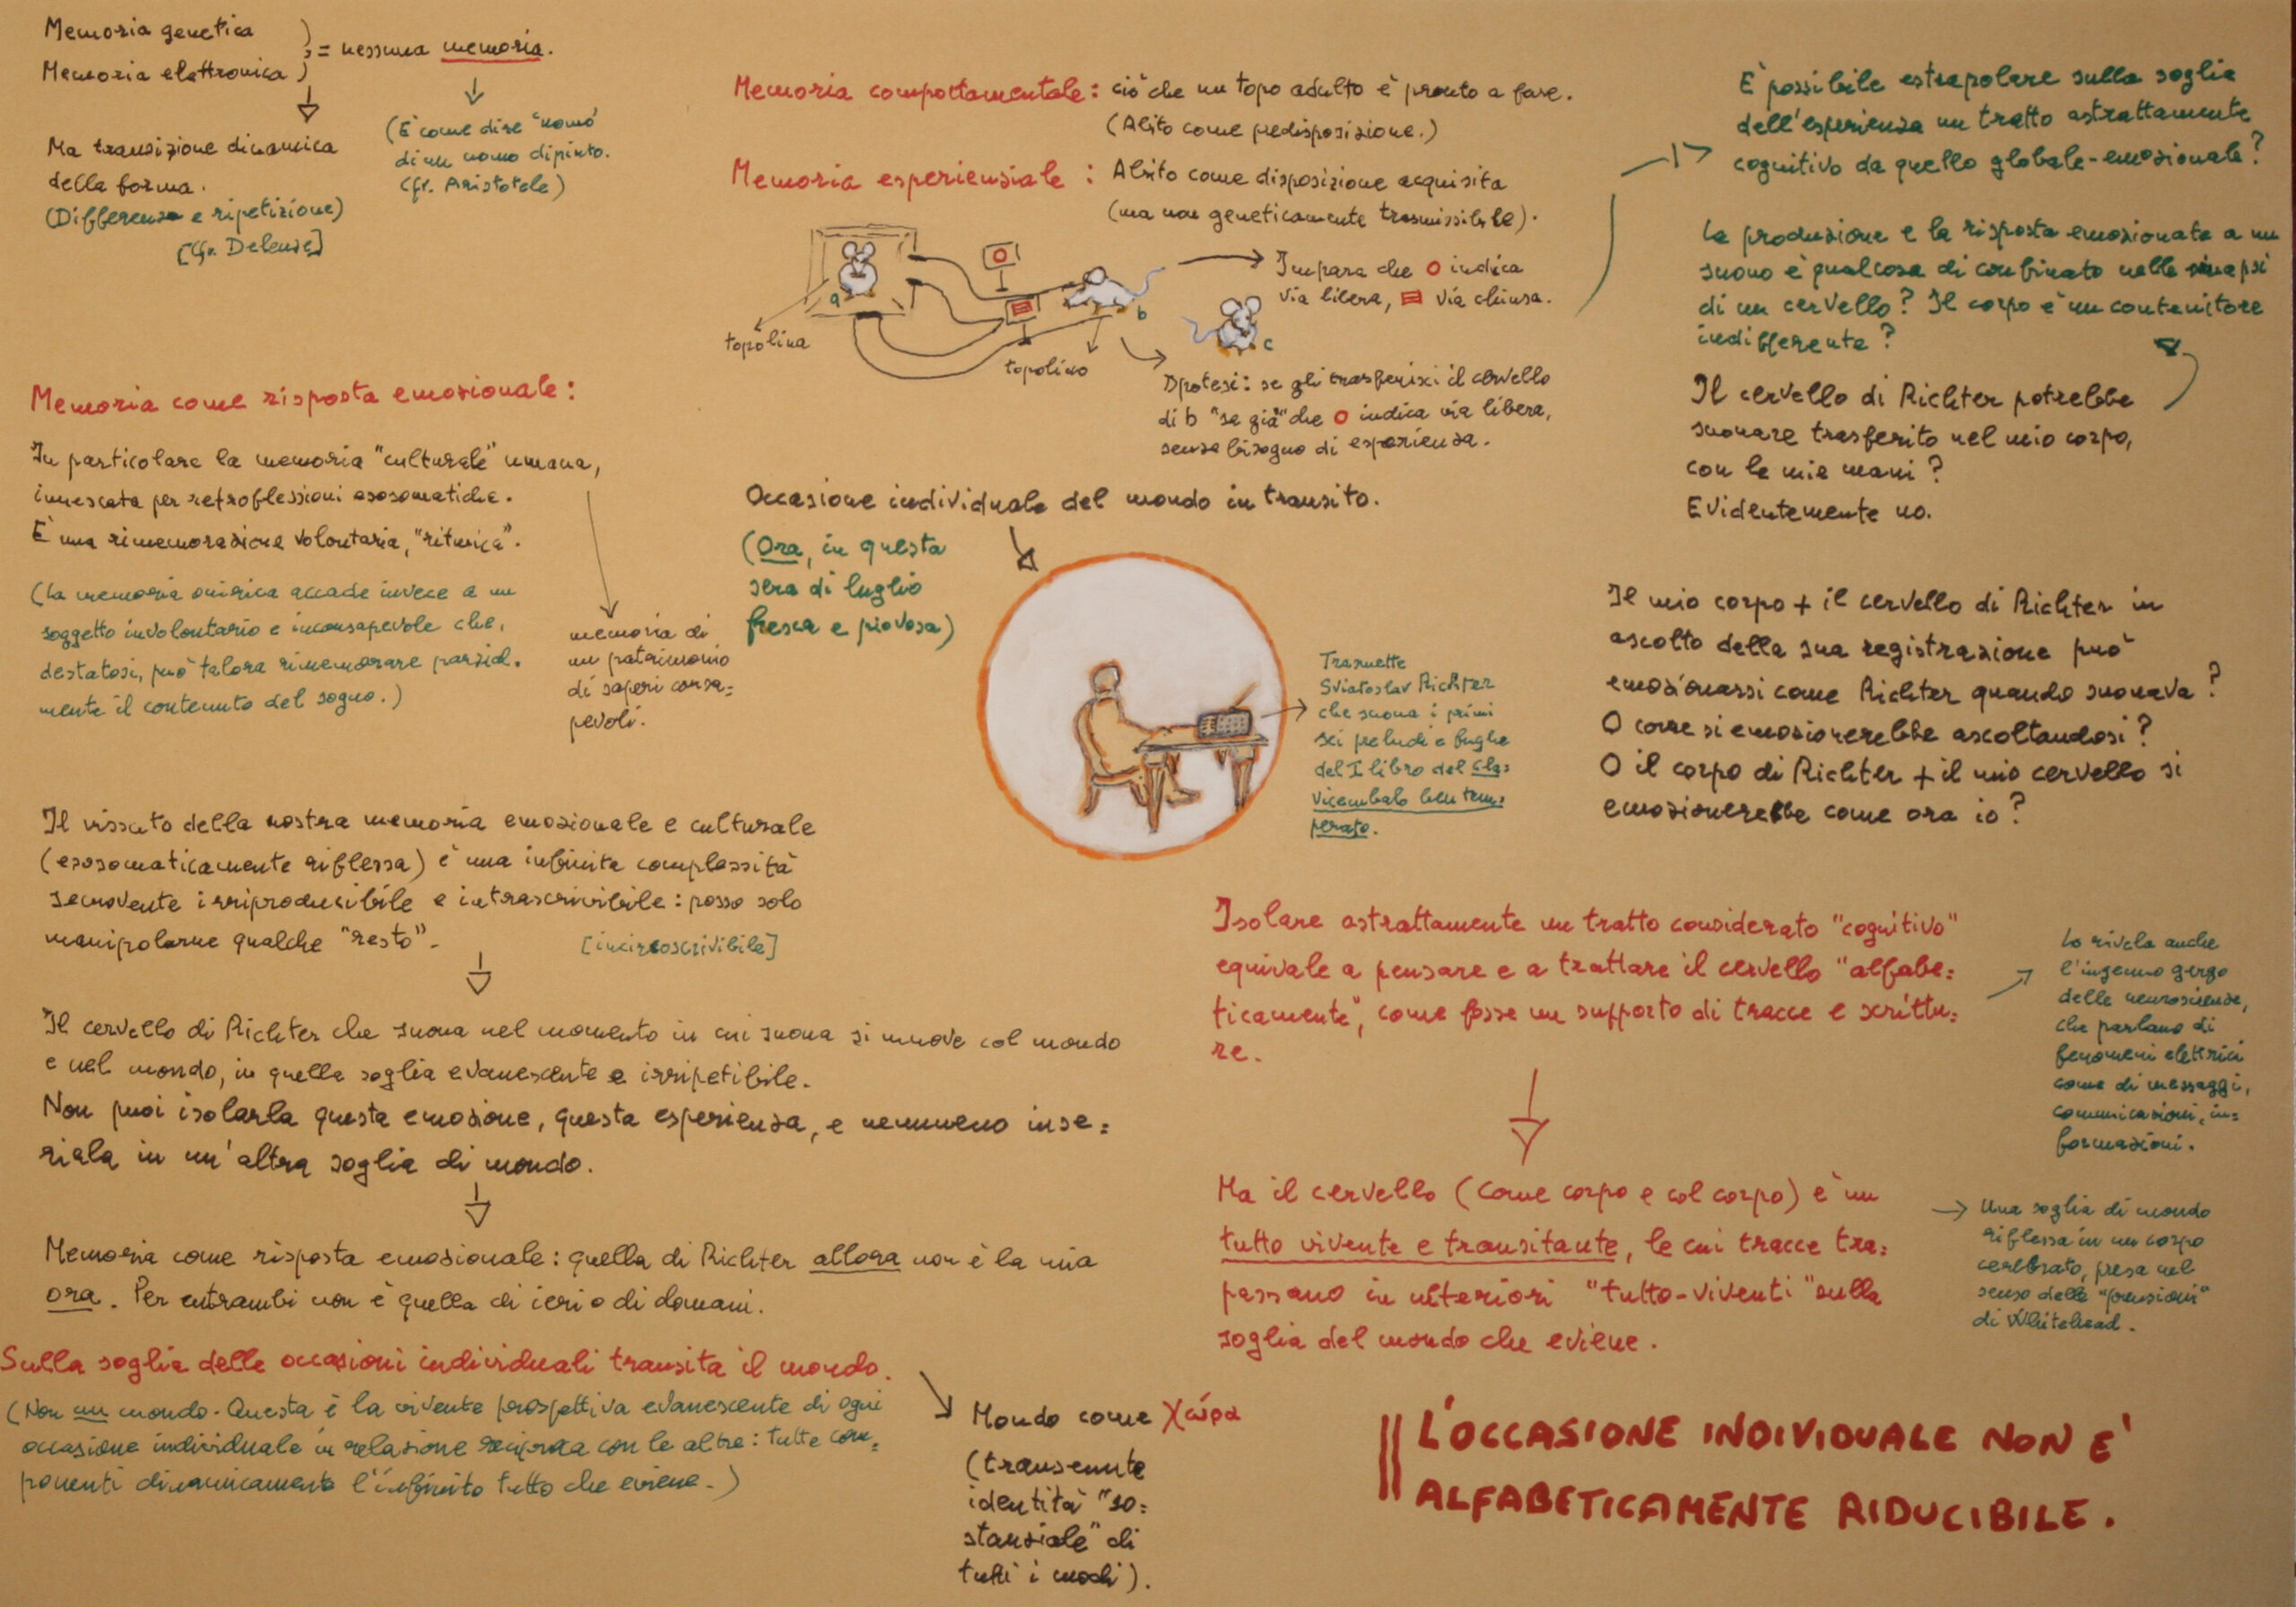 Memoria genetica
Memoria elettronica
= nessuna memoria.
Ma transizione dinamica
della forma.
(Differenza e ripetizione)
[Cfr. Deleuze]
(È come dire "uomo"
di un uomo dipinto.
Cfr. Aristotele)
Memoria come risposta emozionale:
In particolare la memoria "culturale" umana,
innescata per retroflessioni esosomatiche.
È una rimemorazione volontaria, "rituria".
(La memoria onirica accade invece a un
soggetto involontario e inconsapevole che,
destatosi, può talora rimemorare parzial.
mente il contenuto del sogno.)
memoria di
un patrimonio
di saperi consa=
pevoli.
Il vissuto della nostra memoria emozionale e culturale
(esosomaticamente riflessa) è una infinita complessità
semovente irriproducibile e intrascrivibile: posso solo
manipolarne qualche "resto".
[incircoscrivibile]
Il cervello di Richter che suona nel momento in cui suona si muove col mondo
e nel mondo, in quella soglia evanescente e irripetibile.
Non puoi isolarla questa emozione, questa esperienza, e nemmeno inse=
rirla in un'altra soglia di mondo.
Memoria come risposta emozionale: quella di Richter allora non è la mia
ora. Per entrambi non è quella di ieri o di domani.
Sulla soglia delle occasioni individuali transita il mondo.
(Non un mondo. Questa è la vivente prospettiva evanescente di ogni
occasione individuale in relazione reciproca con le altre: tutte com=
ponenti dinamicamente l'infinito tutto che eviene.)
Mondo come χώρα
(transeunte
identità "so=
stanziale" di
tutti i modi).
Memoria comportamentale: ciò che un topo adulto è pronto a fare.
(Abito come pedisposizione.)
Memoria esperienziale: Abito come disposizione acquisita
(ma non geneticamente trasmissibile).
a
b
c
topolina
topolino
Impara che O indica
via libera, via chiusa.
Ipotesi: se gli trasferisci il cervello
di b "sa già" che O indica via libera,
senza bisogno di esperienza.
Occasione individuale del mondo in transito.
(Ora, in questa
sera di luglio
fresca e piovosa)
Trasmette
Sviatoslav Richter
che suona i primi
sei preludi e fughe
del I libro del Cla=
vicembalo ben tem=
perato.
È possibile estrapolare sulla soglia
dell'esperienza un tratto astrattamente
cognitivo da quello globale-emozionale?
La produzione e la risposta emozionata a un
suono è qualcosa di confinato nelle sinapsi
di un cervello? Il corpo è un contenitore
indifferente?
Il cervello di Richter potrebbe
suonare trasferito nel mio corpo,
con le mie mani?
Evidentemente no.
Il mio corpo + il cervello di Richter in
ascolto della sua registrazione può
emozionarsi come Richter quando suonava?
O come si emozionerebbe ascoltandosi?
O il corpo di Richter + il mio cervello si
emozionerebbe come ora io?
Isolare astrattamente un tratto considerato "cognitivo"
equivale a pensare e a trattare il cervello "alfabe=
ticamente", come fosse un supporto di tracce e scrittu=
re.
Lo rivela anche
l'ingenuo gergo
delle neuroscienze,
che parlano di
fenomeni elettrici
come di messaggi,
comunicazioni, in=
formazioni.
Ma il cervello (come corpo e col corpo) è un
tutto vivente e transitante, le cui tracce tra=
passano in ulteriori "tutto-viventi" sulla
soglia del mondo che eviene.
Una soglia di mondo
riflessa in un corpo
cerebrato, presa nel
senso delle "prensioni"
di Whitehead.
L'OCCASIONE INDIVIDUALE NON E'
ALFABETICAMENTE RIDUCIBILE.